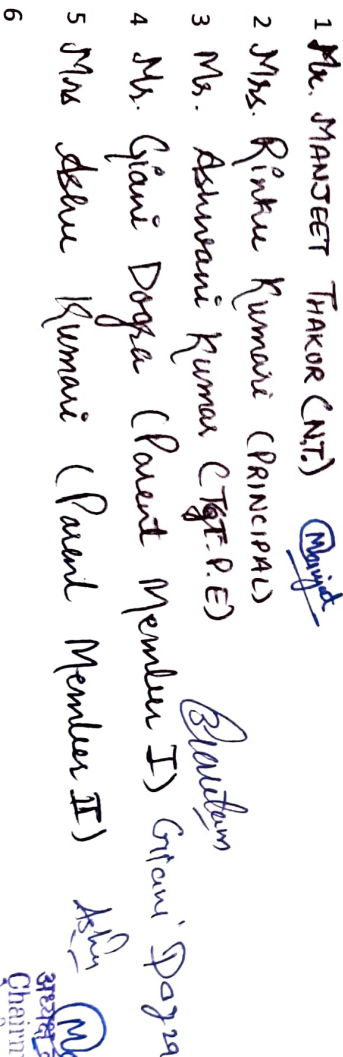 1 Mr. MANJEET THAKOR (N.T.) Manjeet
2 Mrs. Rinku Kumari (PRINCIPAL)
3 Mr. Ashwani Kumar (TGT-P.E)
4 Mr. Giani Dogra (Parent Member I) Giani Dogra
5 Mrs Ashu Kumari (Parent Member II) Ashu
6
अध्यक्ष
Chairm